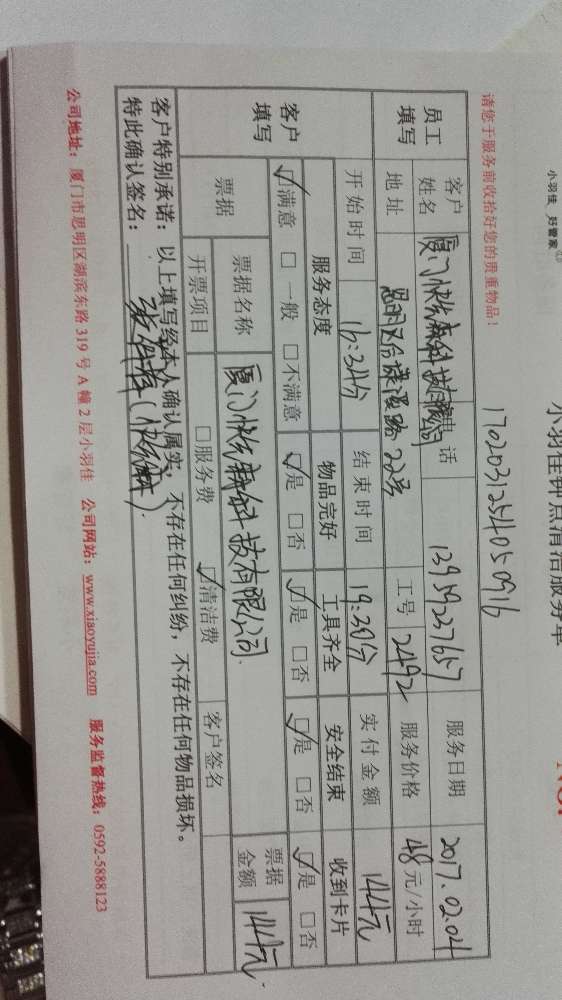 小羽佳 好管家
小羽佳钟点清洁服务单
No.
1702031254050916
请您于服务前收拾好您的贵重物品!
员工填写 客户姓名 厦门快快 科技有限公司 电话 13959227657 服务日期 2017.02.04
地址 思明区 路22号 工号 2492 服务价格 48元/小时
开始时间 16:34分 结束时间 19:39分 实付金额 144元
客户填写 服务态度 物品完好 工具齐全 安全结束 收到卡片
☑满意 □一般 □不满意 ☑是 □否 ☑是 □否 ☑是 □否 ☑是 □否
票据 票据名称 厦门快快 科技有限公司 票据金额 144元
开票项目 □服务费 ☑清洁费 客户签名
客户特别承诺:以上填写经本人确认属实,不存在任何纠纷,不存在任何物品损坏。
特此确认签名:
公司地址:厦门市思明区湖滨东路319号A幢2层小羽佳 公司网站:www.xiaoyujia.com 服务监督热线:0592-5888123